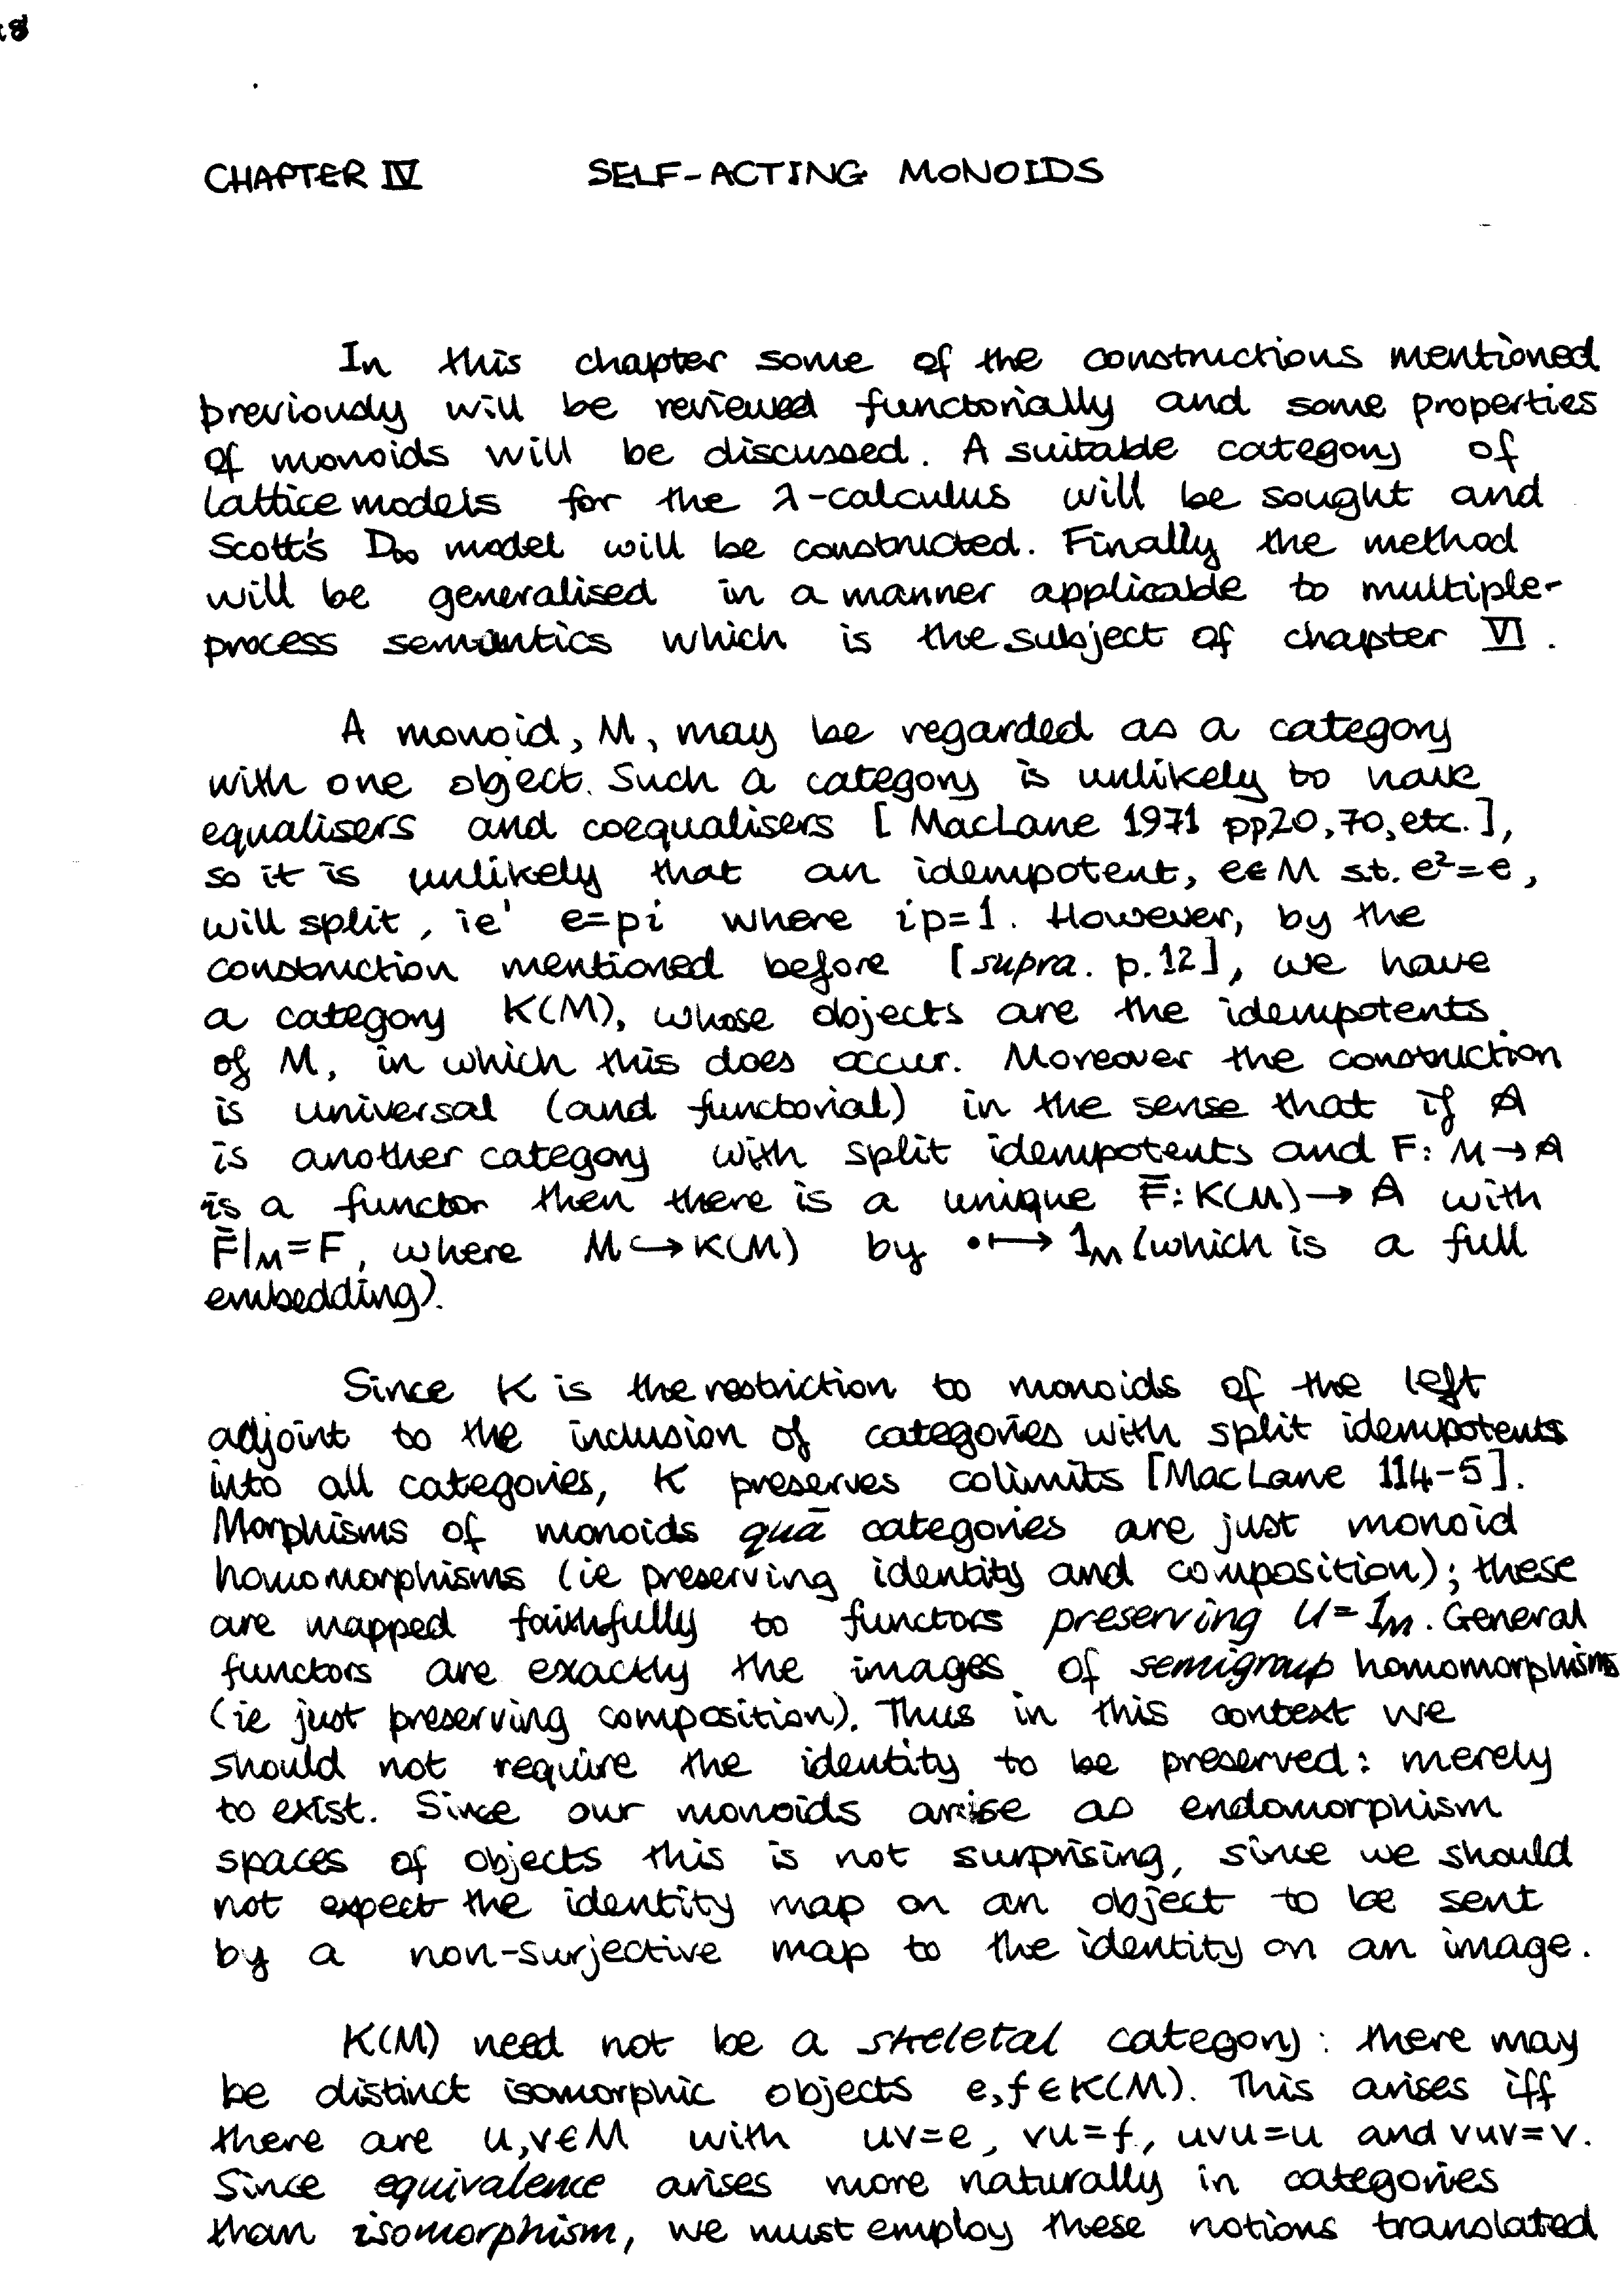 18
CHAPTER IV SELF-ACTING MONOIDS
In this chapter some of the constructions mentioned
previously will be reviewed functorially and some properties
of monoids will be discussed. A suitable category of
lattice models for the λ-calculus will be sought and
Scott's D∞ model will be constructed. Finally the method
will be generalised in a manner applicable to multiple-
process semantics which is the subject of chapter VI.
A monoid, M, may be regarded as a category
with one object. Such a category is unlikely to have
equalisers and coequalisers [MacLane 1971 pp20,70,etc.],
so it is unlikely that an idempotent, e∈M s.t. e²=e,
will split, ie' e=pi where ip=1. However, by the
construction mentioned before [supra. p.12], we have
a category K(M), whose objects are the idempotents
of M, in which this does occur. Moreover the construction
is universal (and functorial) in the sense that if 𝔸
is another category with split idempotents and F: M→𝔸
is a functor then there is a unique F̄: K(M)→𝔸 with
F̄|M=F, where M↪K(M) by •↦1M (which is a full
embedding).
Since K is the restriction to monoids of the left
adjoint to the inclusion of categories with split idempotents
into all categories, K preserves colimits [MacLane 114-5].
Morphisms of monoids quā categories are just monoid
homomorphisms (ie preserving identity and composition); these
are mapped faithfully to functors preserving U=1M. General
functors are exactly the images of semigroup homomorphisms
(ie just preserving composition). Thus in this context we
should not require the identity to be preserved: merely
to exist. Since our monoids arise as endomorphism
spaces of objects this is not surprising, since we should
not expect the identity map on an object to be sent
by a non-surjective map to the identity on an image.
K(M) need not be a skeletal category: there may
be distinct isomorphic objects e,f∈K(M). This arises iff
there are u,v∈M with uv=e, vu=f, uvu=u and vuv=v.
Since equivalence arises more naturally in categories
than isomorphism, we must employ these notions translated